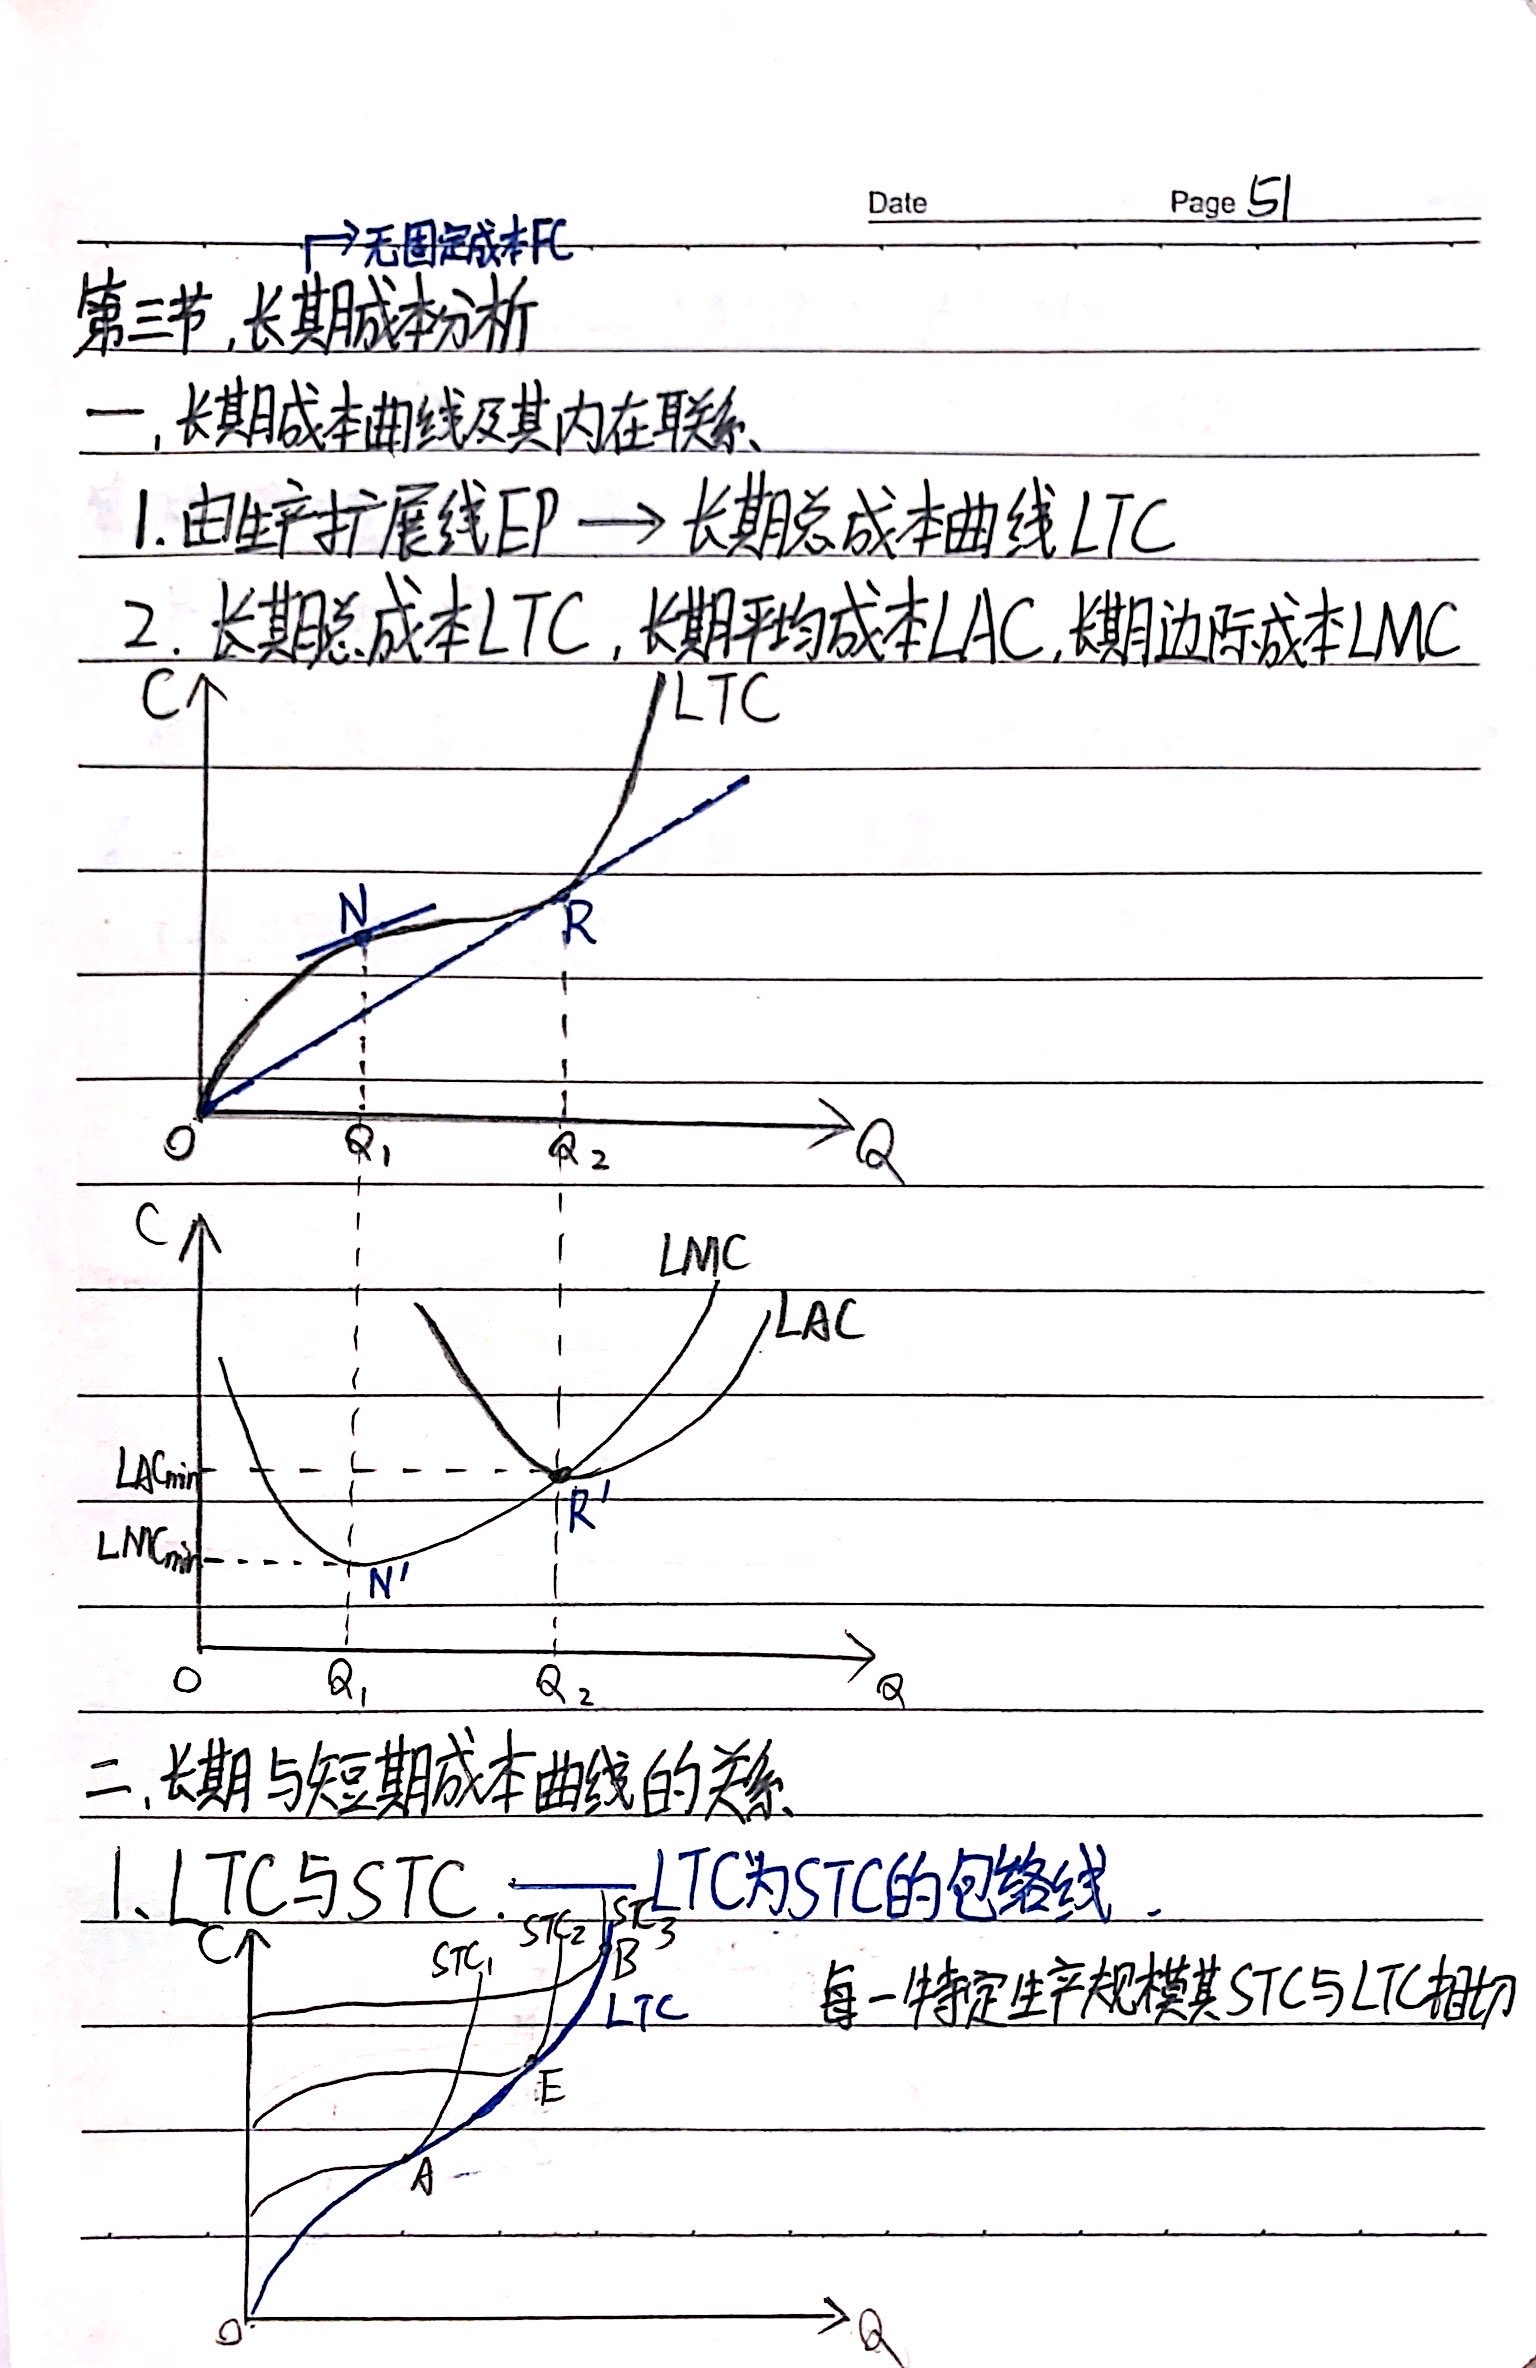 Date Page 51
→无固定成本FC
第三节,长期成本分析
一,长期成本曲线及其内在联系、
1.由生产扩展线EP → 长期总成本曲线LTC
2. 长期总成本LTC,长期平均成本LAC,长期边际成本LMC
C LTC
N
R
O Q₁ Q₂ Q
C
LMC
LAC
LACmin
R'
LMCmin
N'
O Q₁ Q₂ Q
二、长期与短期成本曲线的关系、
1、LTC与STC.——LTC为STC的包络线.
C STC₁ STC₂ STC₃
B
LTC
每一特定生产规模其STC与LTC相切
E
A
O Q